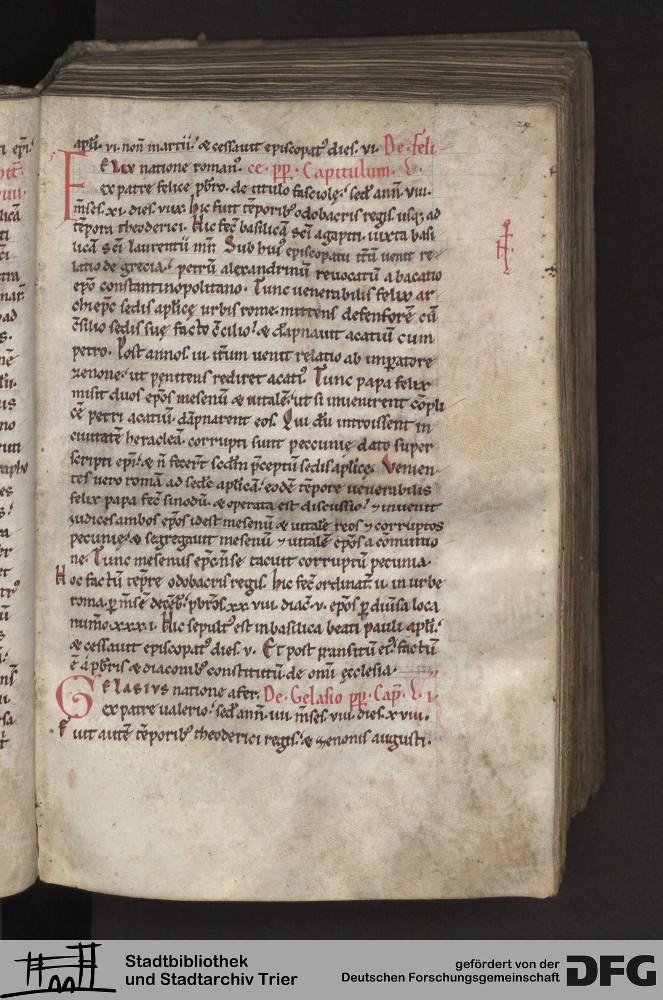 apłi. vi. non̄ martii. & cessauit episcopat᷒ dies. vi. De. feli
Elix natione roman᷒. ce. pp. Capitulum. L.
ex patre felice pb̄ro. de titulo fasciolę. sed̄. ann̄. viii.
m̄ses. xi. dies. xvii. hic fuit tēporib᷒ odobacris regis. usq; ad
tēpora theoderici. hic fec̄ basilicā sc̄i agapiti. iuxta basi
licā sc̄i laurentii mr̄. Sub hui᷒ episcopatu itr̄ū uenit re
latio de grecia. petrū alexandrinū reuocatū ab acatio
ep̄o constantinopolitano. Tunc uenerabilis felix ar
chiep̄c sedis aplicę urbis rome. mittens defensorē cū
c̄silio sedis suę facto c̄cilio. & dāpnauit acatiū cum
petro. Post annos iii itr̄um uenit relatio ab imp̄atore
zenone. ut penitens rediret acati᷒. Tunc papa felix
misit duos ep̄os mesenū & uitalē. ut si inuenirent cōpli
cē petri acatiū. dāpnarent eos. Qui dū introissent in
ciuitatē heracleā. corrupti sunt peccunię dato super
scripti ep̄i. & n̄ fecer̄t sedm̄ p̄ceptū sedis aplicę. Uenien
tes uero romā ad sedē aplicā. eodē tēpore uenerabilis
felix papa fec̄ sinodū. & operata est discussio. & inuenit
iudices ambos ep̄os idest mesenū & uitalē reos & corruptos
pecunię. & segregauit mesenū & uitalē ep̄os a cōmunio
ne. Tunc mesenus ep̄c n̄ se tacuit corruptū pecunia.
hoc factū tēp̄re odobacris regis. hic fec̄ ordinat̄. ii. in urbe
roma. p m̄sē decēb̄. pb̄ros. xxviii. diac̄. v. ep̄os p diūsa loca
num̄o. xxxi. hic sepult᷒ est in basilica beati pauli apłi.
& cessauit episcopat᷒ dies. v. Et post transitū ei᷒. factū
ē a pb̄ris & diaconib᷒ constitutū de om̄i ecclesia.
GElasius natione afer. De. Gelasio pp. Cap̄. L. i.
ex patre ualerio. sed̄ ann̄. iiii. m̄ses. viii. dies. xviii.
Fuit autē tēporib᷒ theoderici regis. & zenonis augusti.
Stadtbibliothek
und Stadtarchiv Trier
gefördert von der
Deutschen Forschungsgemeinschaft
DFG